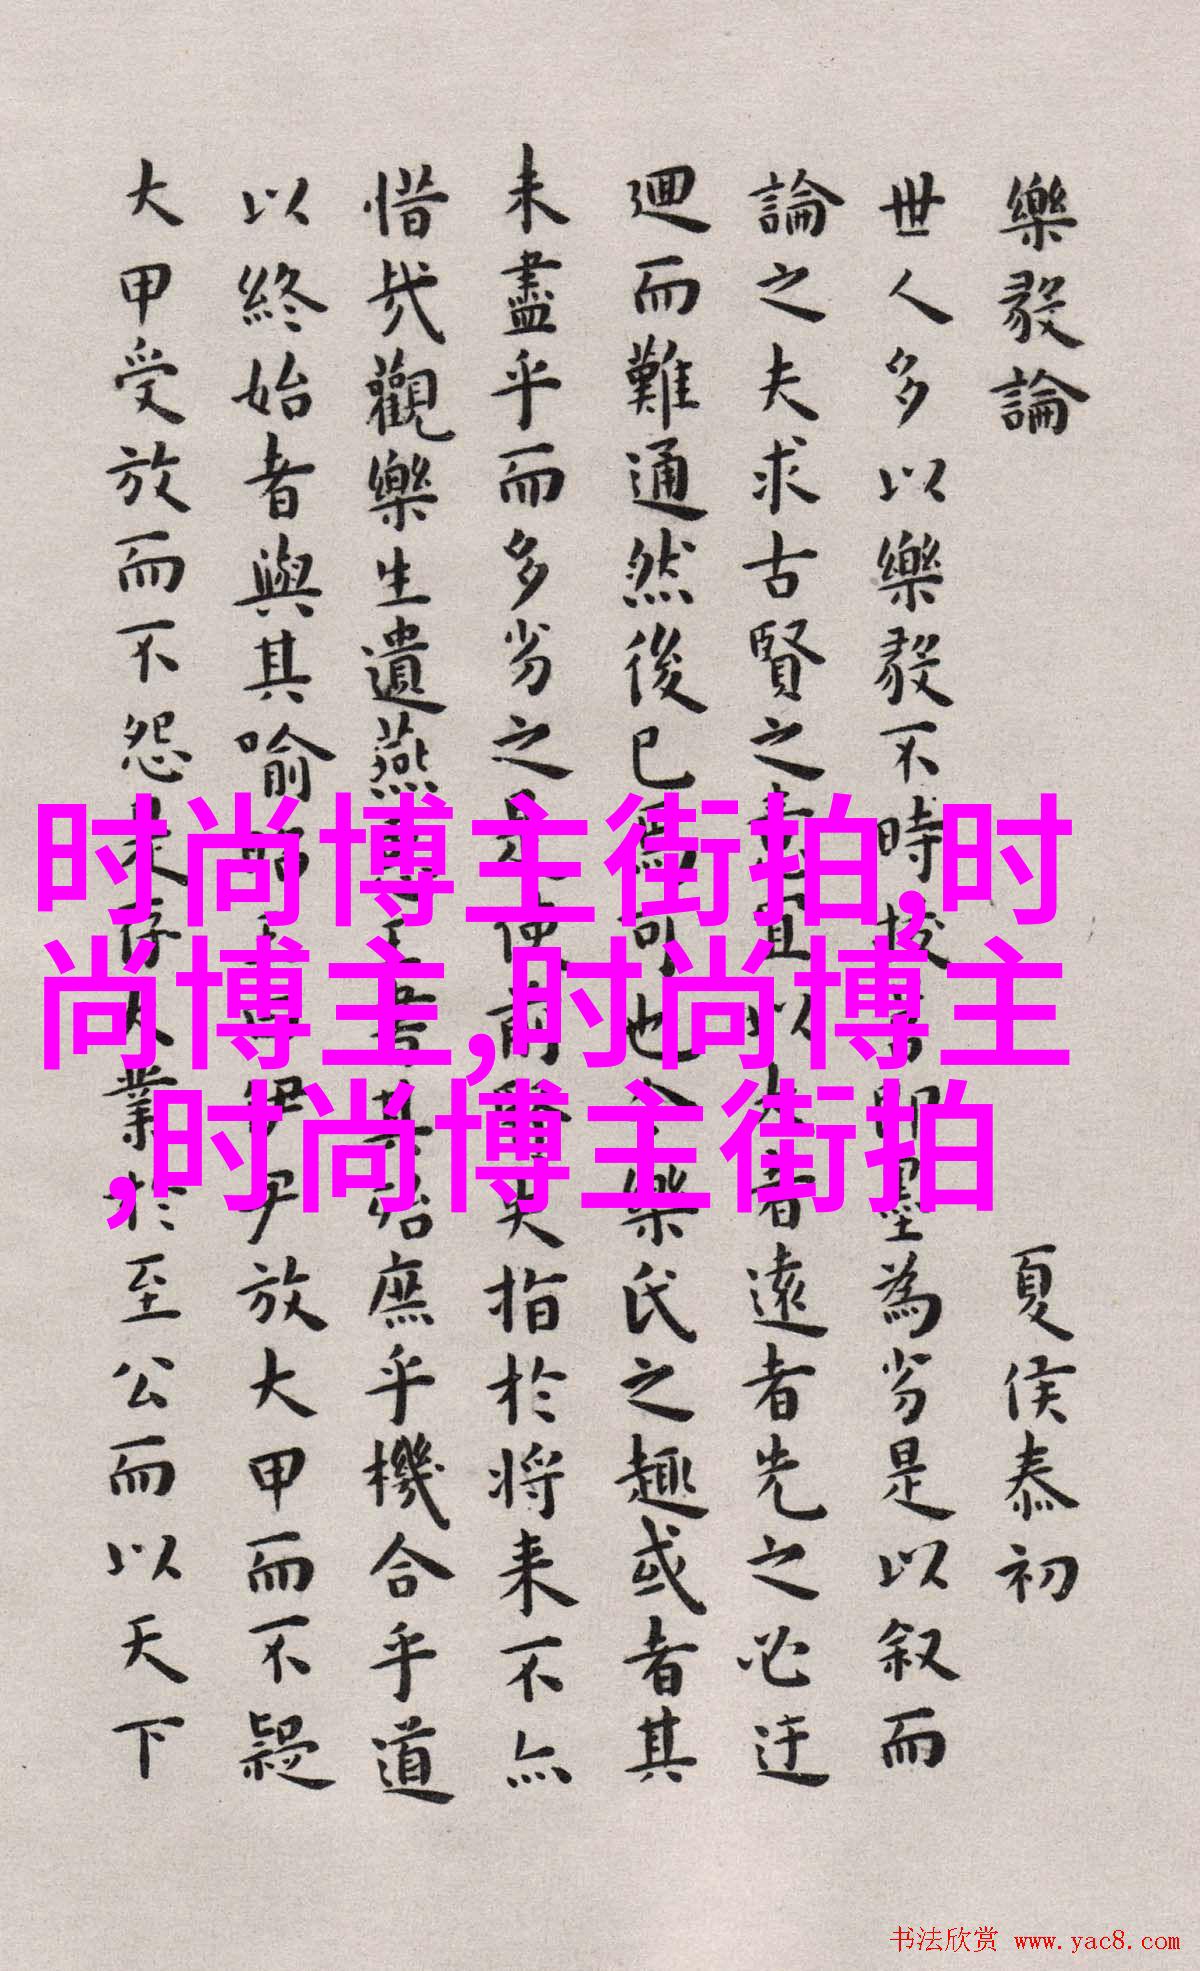 樂毅論 夏侯泰初
世人多以樂毅不時拔莒即墨為劣是以叙而
論之夫求古賢之意宜以大者遠者先之必迂
迴而難通然後已焉可也今樂氏之趣或者其
未盡乎而多劣之是使前賢失指於将来不亦
惜哉觀樂生遺燕惠王書其殆庶乎機合乎道
以終始者與其喻昭王曰伊尹放大甲而不疑
大甲受放而不怨是存大業於至公而以天下
时尚博主街拍,时
尚博主,时尚博主
,时尚博主街拍
书法欣赏 www.yac8.com